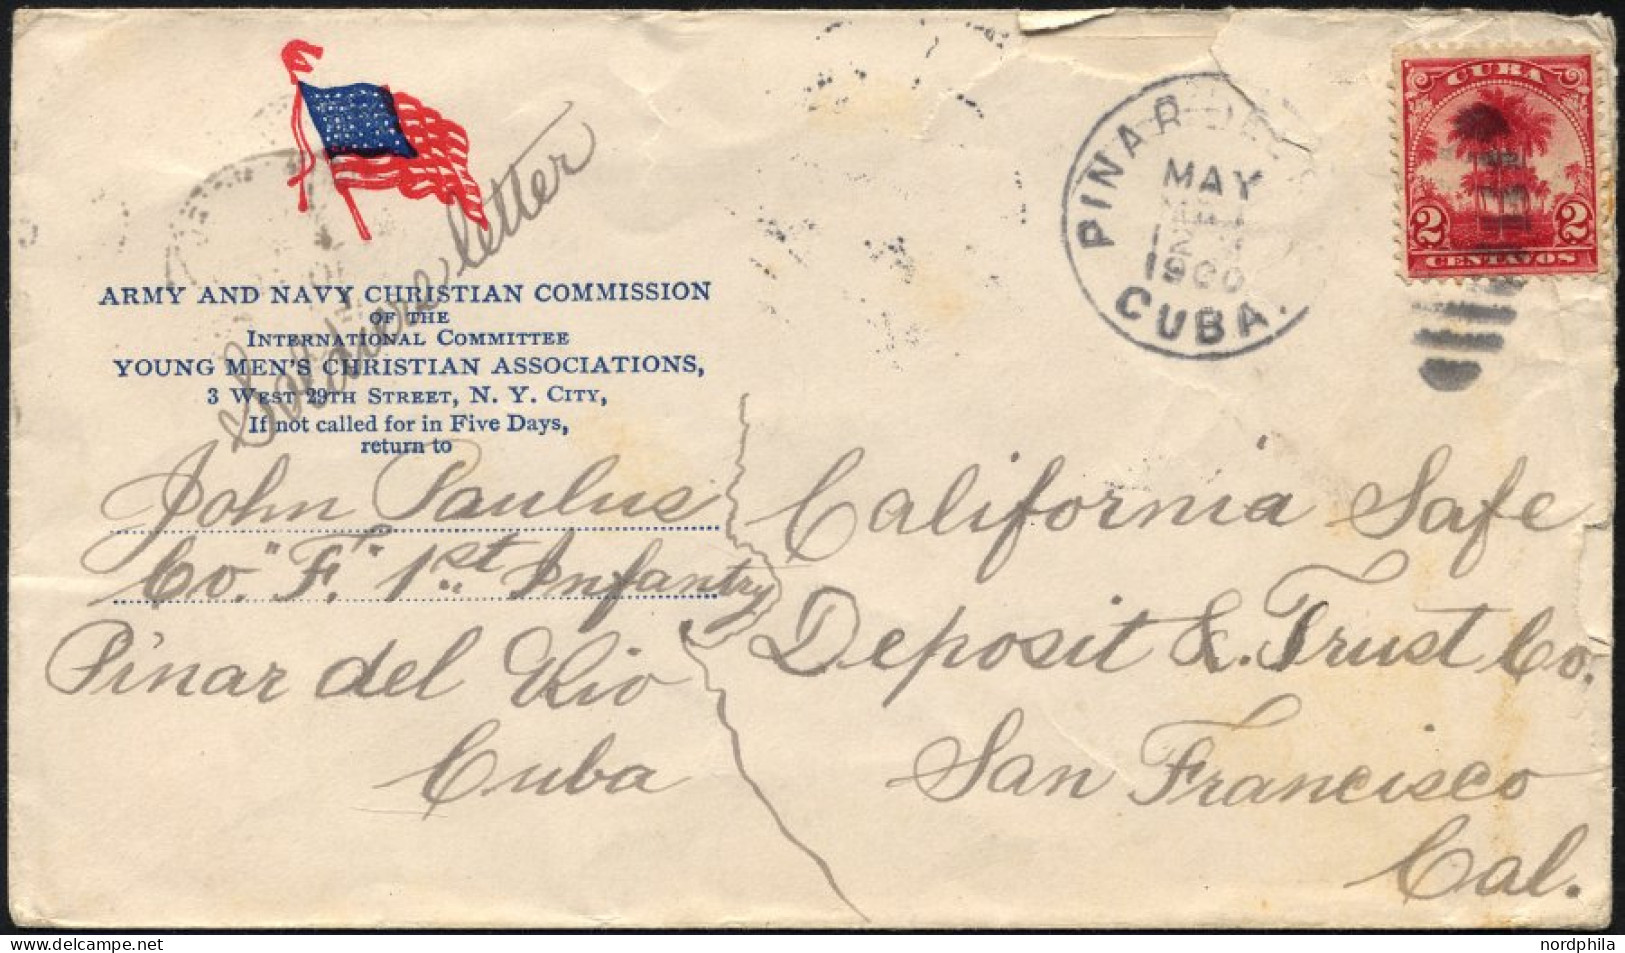 ARMY AND NAVY CHRISTIAN COMMISSION
OF THE
INTERNATIONAL COMMITTEE
YOUNG MEN'S CHRISTIAN ASSOCIATIONS,
3 WEST 29TH STREET, N. Y. CITY,
If not called for in Five Days,
return to
John Paulus
Co. "F." 1st Infantry
Pinar del Rio
Cuba
letter
PINAR DEL
MAY
1900
CUBA.
CUBA
2 2
CENTAVOS
California Safe
Deposit &. Trust Co.
San Francisco
Cal.
nordphila